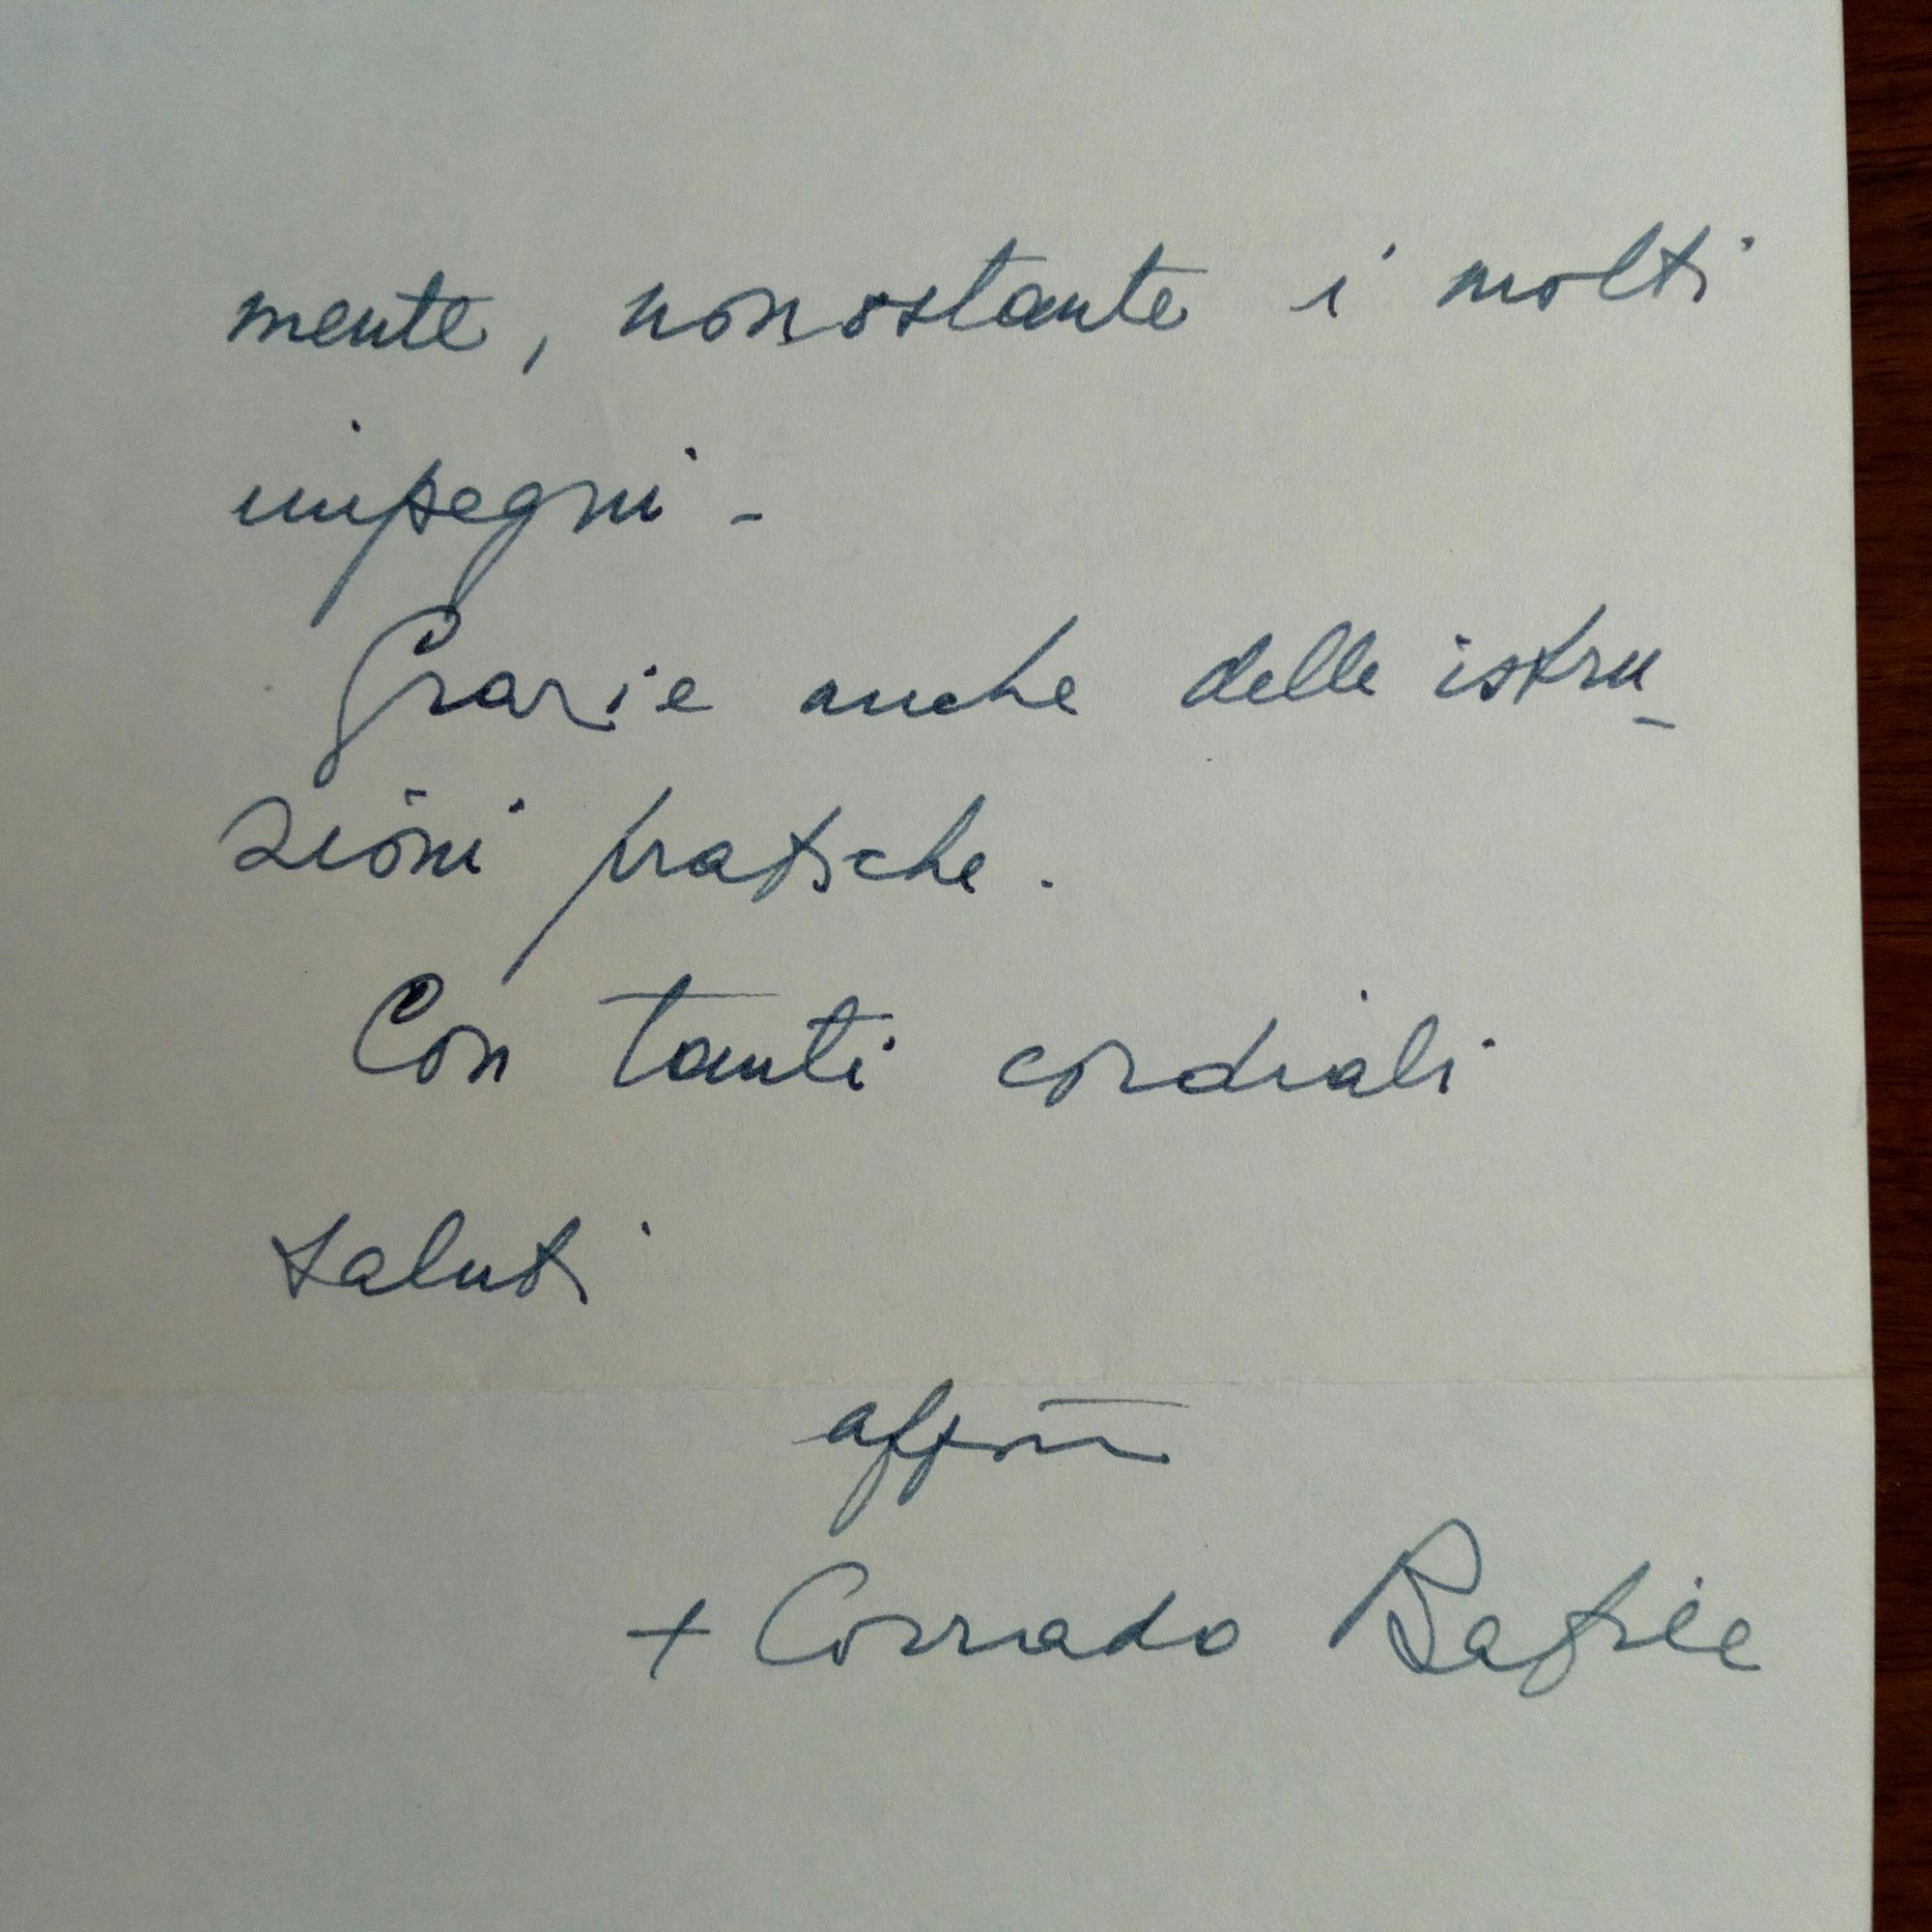 mente, nonostante i molti
impegni -
Grazie anche delle istru-
zioni pratiche.
Con tanti cordiali
saluti
+ Corrado Bafile